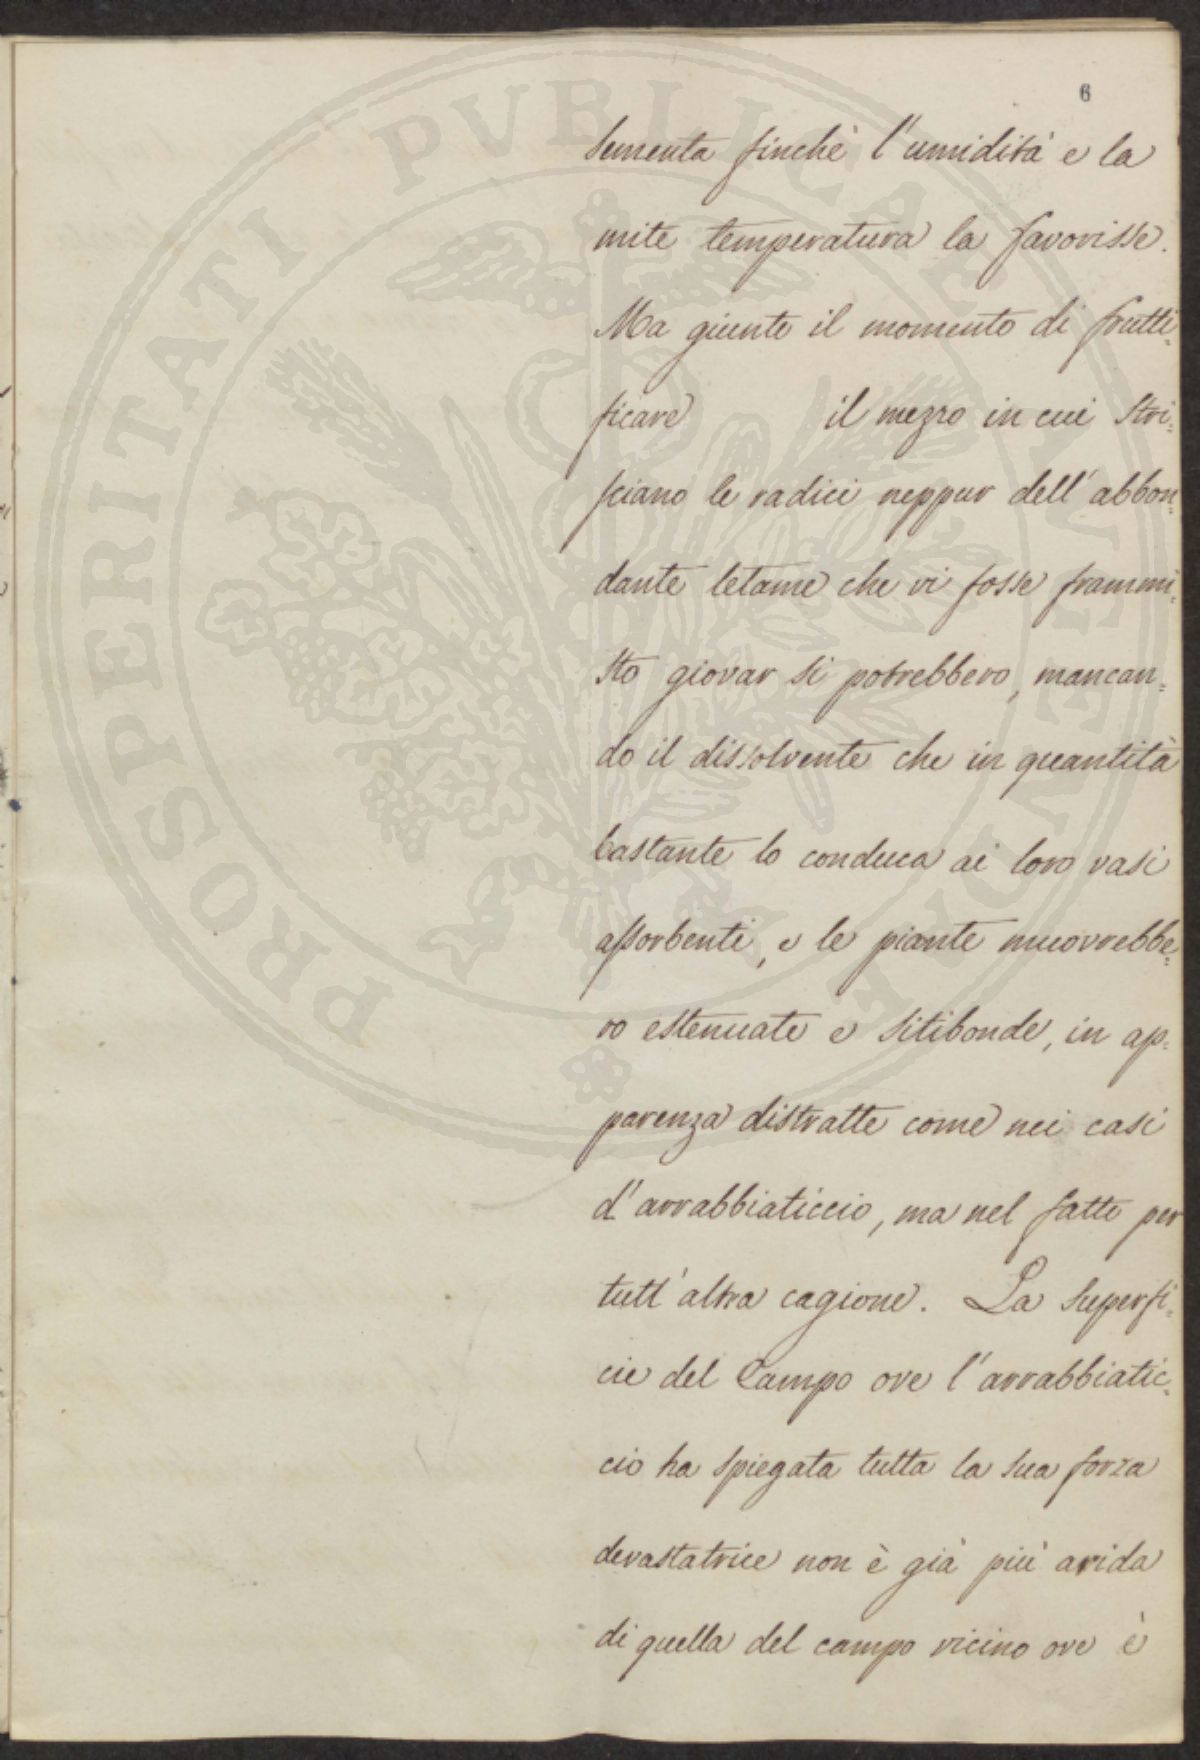 6
sementa finchè l'umidità e la
mite temperatura la favorisse.
Ma giunto il momento di frutti=
ficare il mezzo in cui stri=
sciano le radici neppur dell'abbon=
dante letame che vi fosse frammi=
sto giovar si potrebbero, mancan=
do il dissolvente che in quantità
bastante lo conduca ai loro vasi
assorbenti, e le piante muorrebbe=
ro estenuate e sitibonde, in ap=
parenza distratte come nei casi
d'arrabbiaticcio, ma nel fatto per
tutt'altra cagione. La superfi=
cie del Campo ove l'arrabbiatic=
cio ha spiegata tutta la sua forza
devastatrice non è già più arida
di quella del campo vicino ove è
PROSPERITATI PVBLICAE AVGENDAE